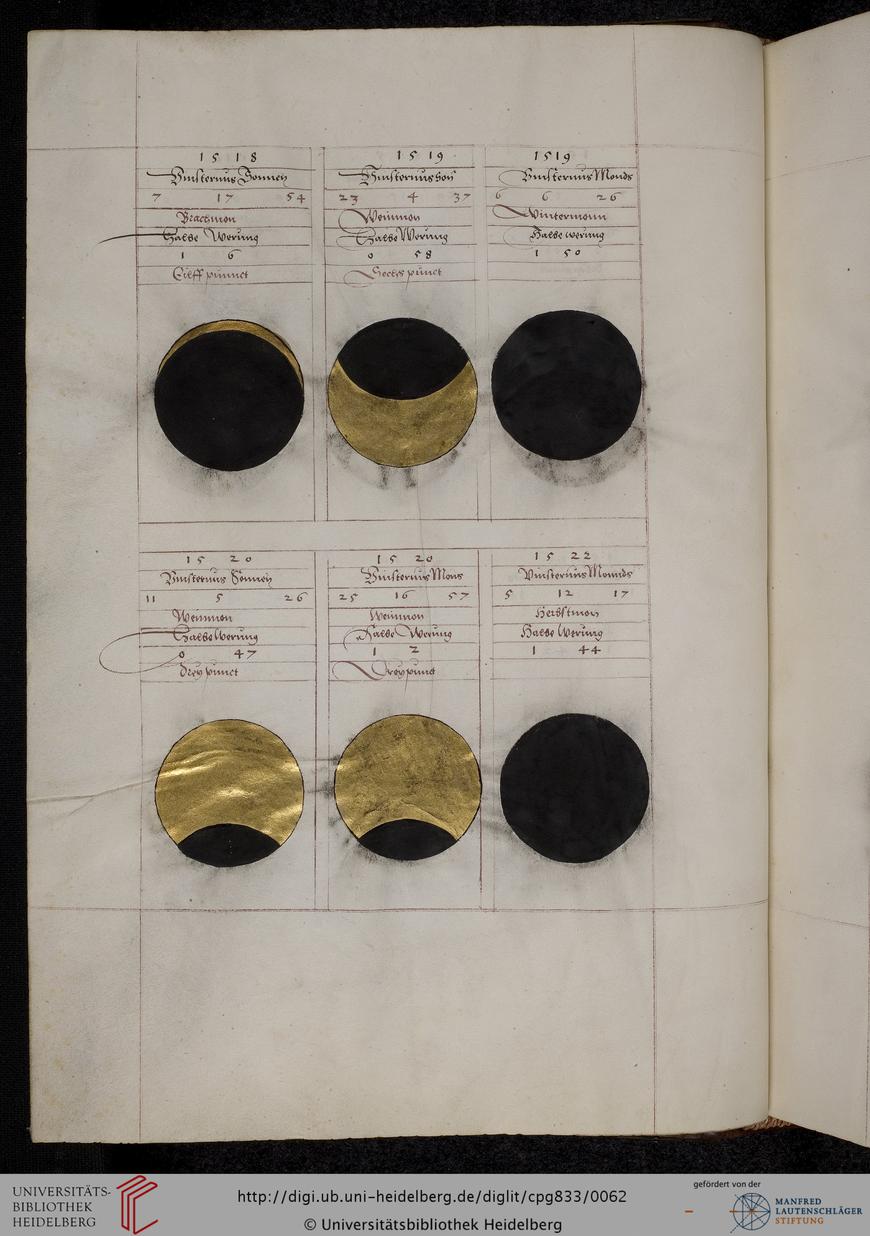 1518
Vinsternus Sonnen
7 17 54
Brachmon
Halbe Werung
1 6
Eilff punnct
1519
Vinsternus Son
23 4 37
Weinmon
Halbe Werung
0 58
Sechs punct
1519
Vinsternus Monds
6 6 26
Wintermonn
Halbe werung
1 50
1520
Vinsternus Sonnen
11 5 26
Weinmon
Halbe Werung
0 47
Drey punct
1520
Vinsternus Mons
25 16 57
Weinmon
Halbe Werung
1 2
Drey punct
1522
Vinsternus Mounds
5 12 17
Herbstmon
Halbe Werung
1 44
UNIVERSITÄTS-
BIBLIOTHEK
HEIDELBERG
http://digi.ub.uni-heidelberg.de/diglit/cpg833/0062
© Universitätsbibliothek Heidelberg
gefördert von der
MANFRED
LAUTENSCHLÄGER
STIFTUNG